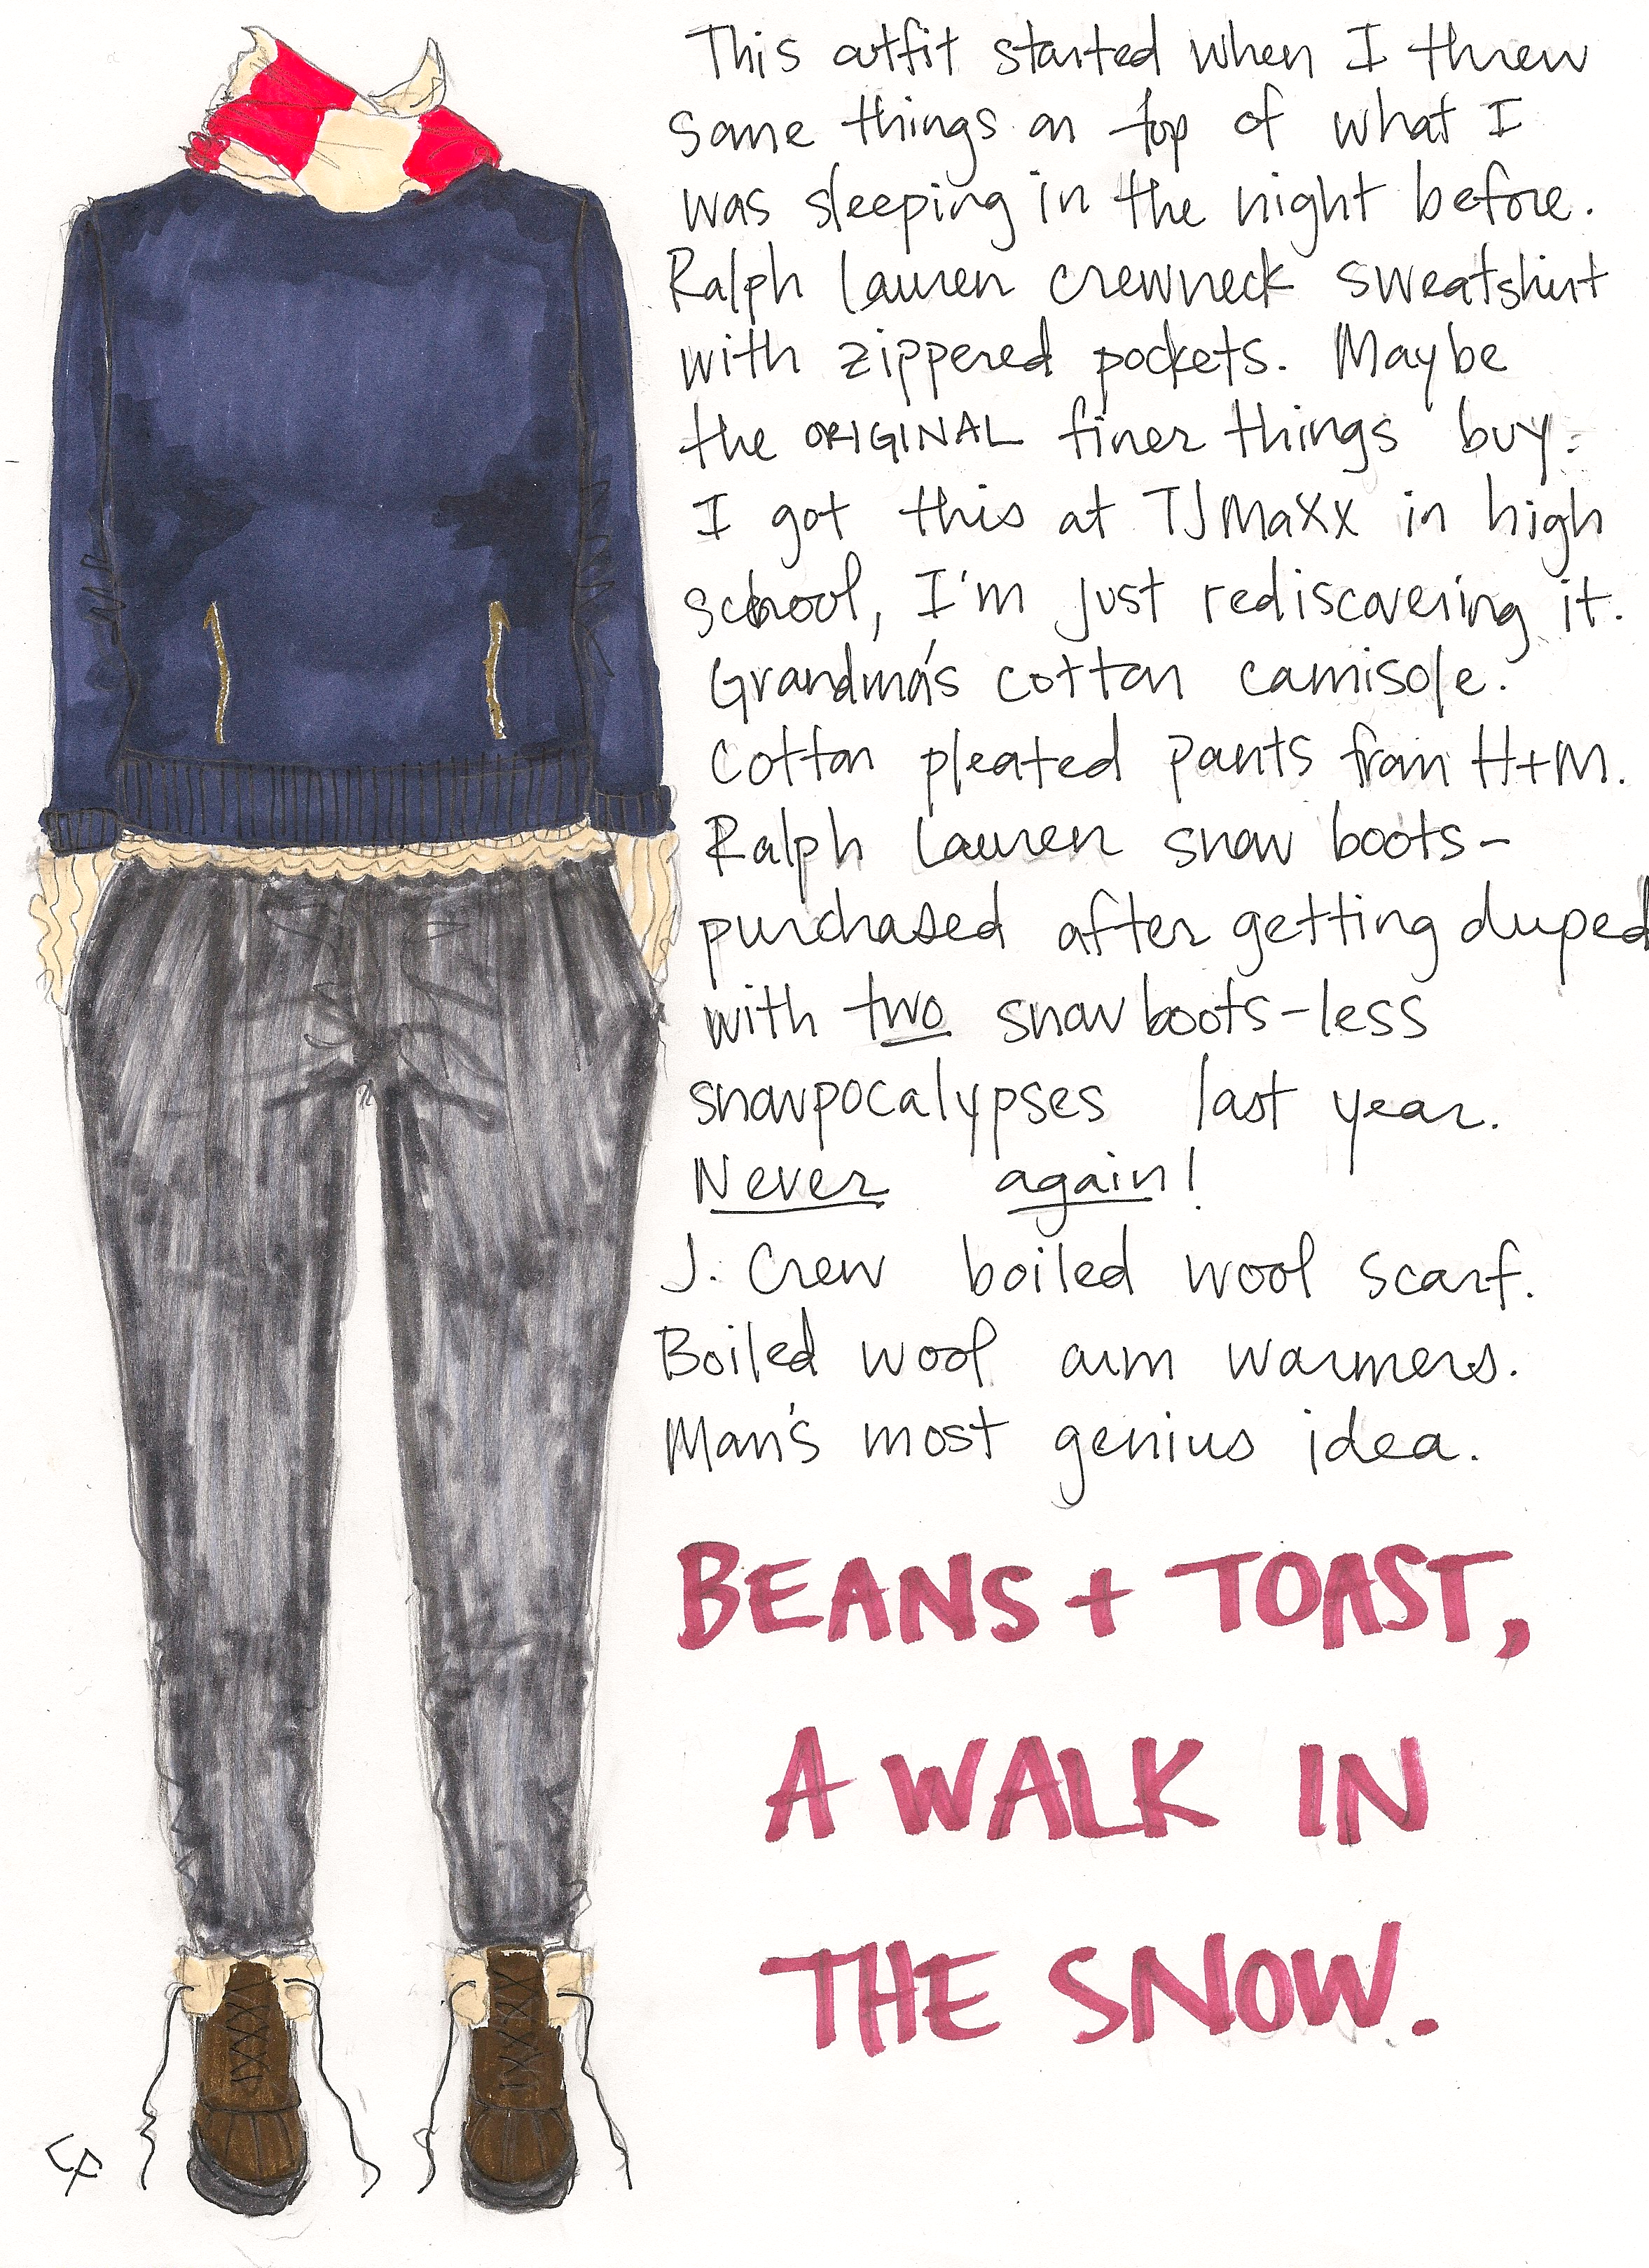 This outfit started when I threw
some things on top of what I
was sleeping in the night before.
Ralph Lauren crewneck sweatshirt
with zippered pockets. Maybe
the ORIGINAL finer things buy.
I got this at TJMaxx in high
school, I'm just rediscovering it.
Grandma's cotton camisole.
Cotton pleated pants from H+M.
Ralph Lauren snow boots-
purchased after getting duped
with two snowboots-less
snowpocalypses last year.
Never again!
J. Crew boiled wool scarf.
Boiled wool arm warmers.
Man's most genius idea.
BEANS + TOAST,
A WALK IN
THE SNOW.